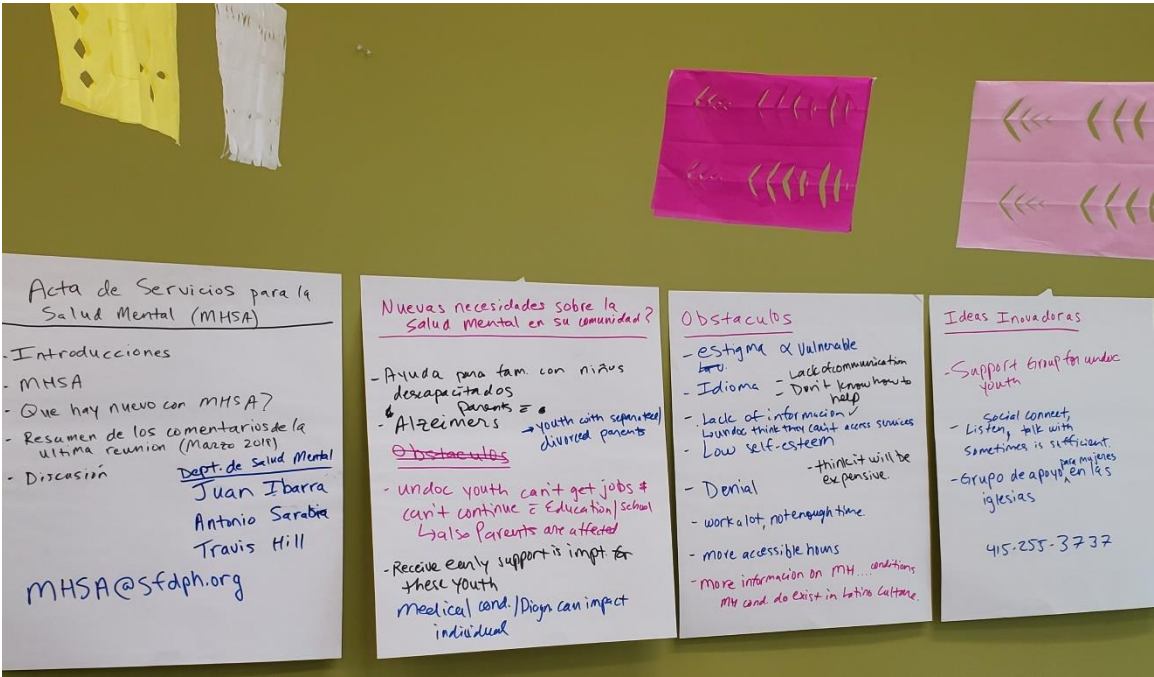 Acta de Servicios para la
Salud Mental (MHSA)
- Introducciones
- MHSA
- Que hay nuevo con MHSA?
- Resumen de los comentarios de la
ultima reunion (Marzo 2018)
- Discusión
Dept. de Salud Mental
Juan Ibarra
Antonio Sarabia
Travis Hill
MHSA@sfdph.org
Nuevas necesidades sobre la
Salud Mental en su comunidad?
- Ayuda para fam. con niños
descapacitados
parents =
- Alzeimers
→ youth with separated/
divorced parents
Obstaculos
- undoc youth can't get jobs &
can't continue c̄ Education/school
↳ also Parents are affected
- Receive early support is impt. for
these youth
Medical cond./Diagn can impact
individual
Obstaculos
- estigma α Vulnerable
- Idioma
- Lack of communication
- Don't know how to
help
- Lack of informacion ✓
↳ undoc think they can't access services
- Low self-esteem
- think it will be
expensive.
- Denial
- work a lot, not enough time.
- more accessible hours
- more informacion on MH.... conditions
MH cond. do exist in Latino Culture.
Ideas Inovadoras
- Support Group for undoc
youth
Social connect,
- Listen, talk with
Sometimes is sufficient.
- Grupo de apoyo ^ para mujeres en las
iglesias
415-255-3737